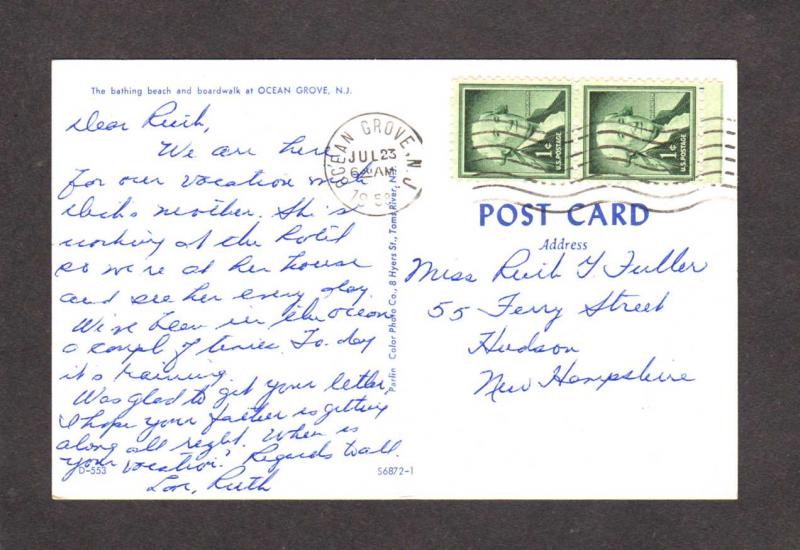 The bathing beach and boardwalk at OCEAN GROVE, N.J.
Dear Ruth,
We are here
for our vacation with
Dick's mother. She's
working at the hotel
so we're at her house
and see her every day.
We've been in the ocean
a coupl of times. To-day
it's raining.
Was glad to get your letter,
I hope your father is getting
along all right. When is
your vacation? Regards to all.
Love, Ruth
D-553
S6872-1
Parlin Color Photo Co., 8 Hyers St., Toms River, N.J.
OCEAN GROVE N.J.
JUL 23
6 AM
1958
1¢
U.S. POSTAGE
1¢
U.S. POSTAGE
POST CARD
Address
Miss Ruth Y Fuller
55 Ferry Street
Hudson
New Hampshire